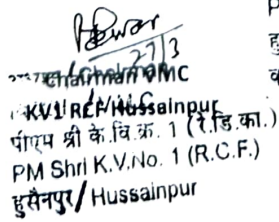 27/3
Chairman VMC
KV1 RCF Hussainpur
पीएम श्री के.वि.क्र. 1 (रे.डि.का.)
PM Shri K.V.No. 1 (R.C.F.)
हुसैनपुर / Hussainpur